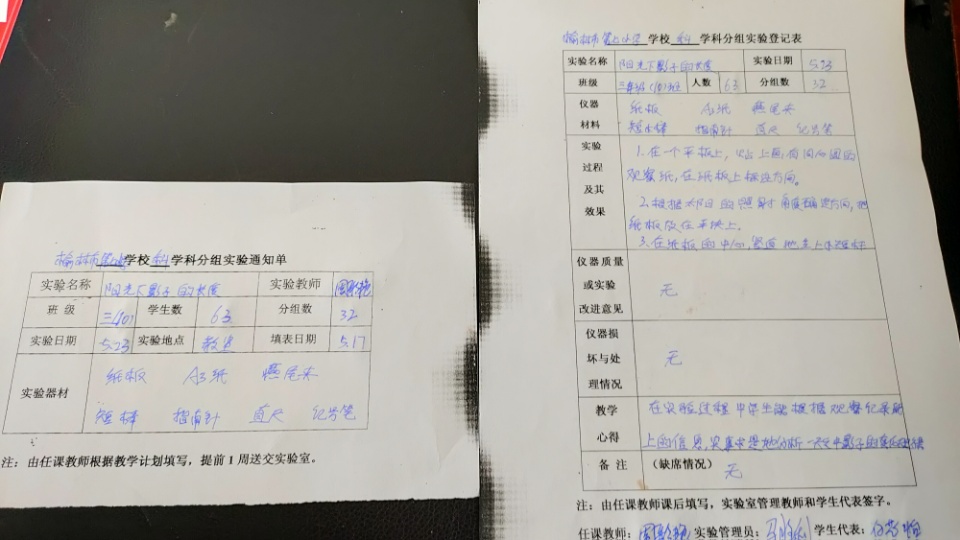 榆林市 学校 科 学科分组实验通知单
实验名称 阳光下影子的长度 实验教师
班级 三(10) 学生数 63 分组数 32
实验日期 5.23 实验地点 教室 填表日期 5.17
实验器材 纸板 A3纸 燕尾夹
短棒 指南针 直尺 记号笔
注：由任课教师根据教学计划填写，提前1周送交实验室。
榆林市 学校 科 学科分组实验登记表
实验名称 阳光下影子的长度 实验日期 5.23
班级 三年级(10)班 人数 63 分组数 32
仪器 纸板 A3纸 燕尾夹
材料 短小棒 指南针 直尺 记号笔
实验 1.在一个平板上，
过程 观察纸，在纸板上标注方向。
及其
效果 2.根据太阳的照射角度确定方向，把
纸板放在平块上。
3.在纸板的中心，
仪器质量
或实验 无
改进意见
仪器损
坏与处 无
理情况
教学 在实验过程中学生能根据观察纪录
心得 上的信息，实事求是地分析一天中影子的变化
备注 (缺席情况) 无
注：由任课教师课后填写，实验室管理教师和学生代表签字。
任课教师： 实验管理员： 学生代表：